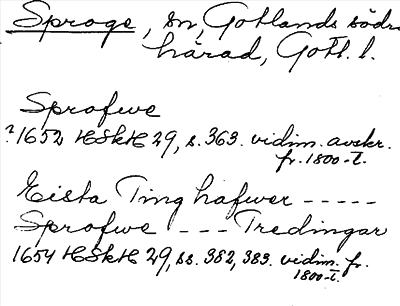 Sproge, sn, Gotlands södra
härad, Gotl. l.
Sprofwe
? 1652 HSkH 29, s. 363. vidim. avskr.
fr. 1800-t.
Eista Ting hafwer -----
Sprofwe --- Tredingar
1654 HSkH 29, ss. 382, 383. vidim. fr.
1800-t.